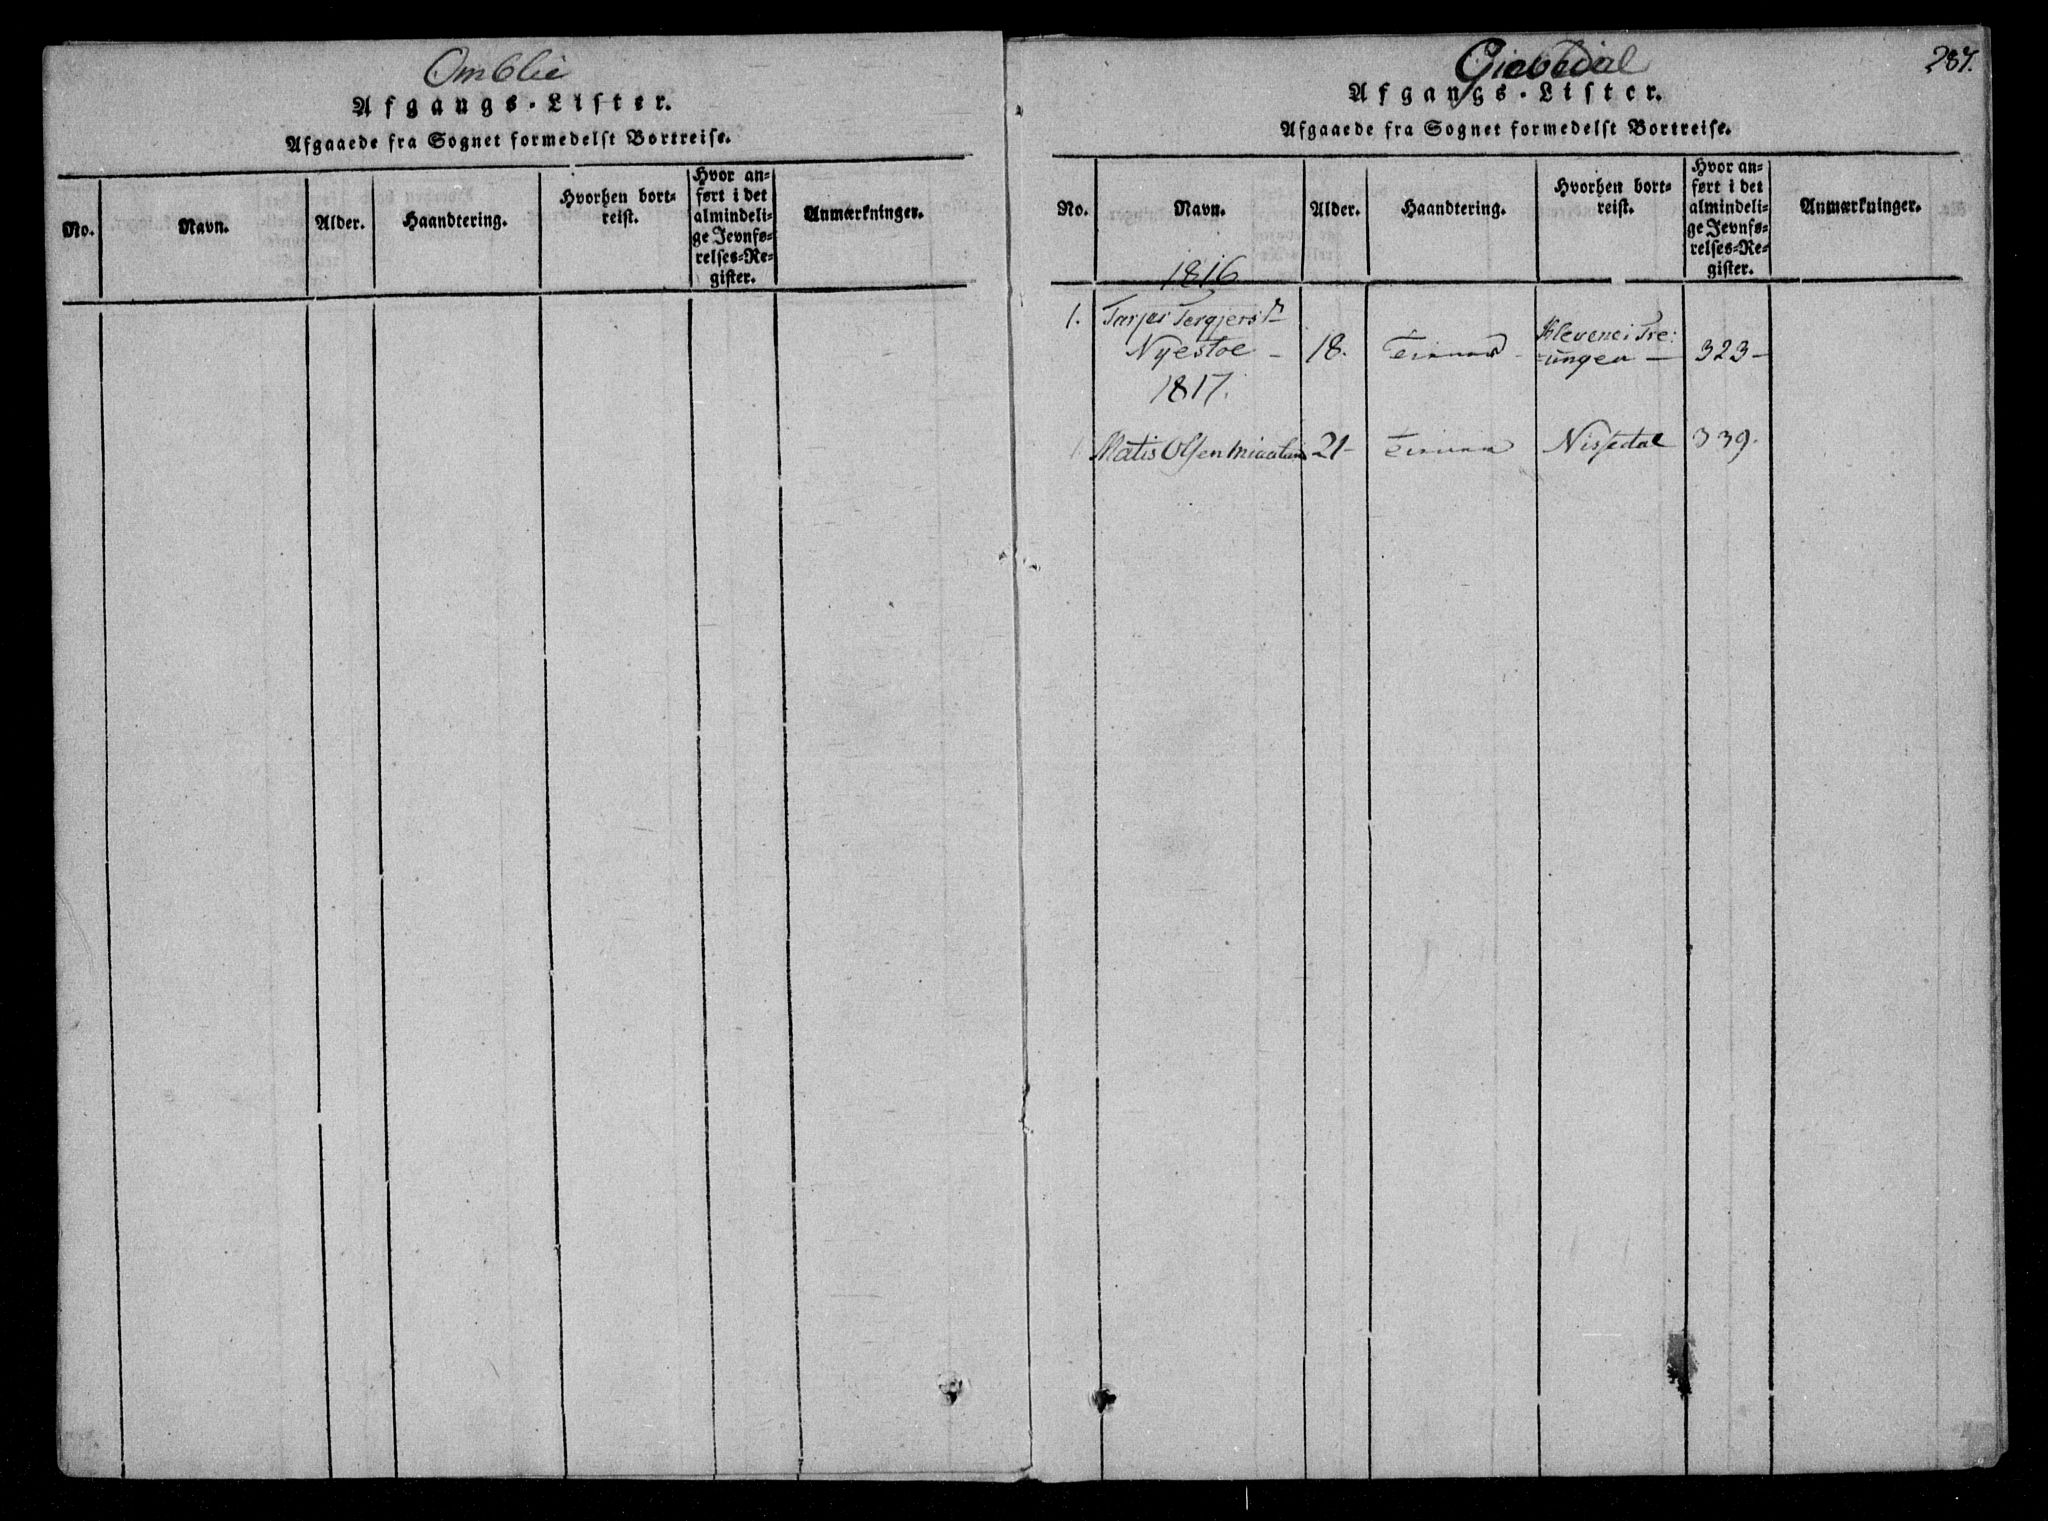 Omblie
Afgangs-Lister.
Afgaaede fra Sognet formedelst Bortreise.
No.
Navn.
Alder.
Haandtering.
Hvorhen bort-
reist.
Hvor an-
ført i det
almindeli-
ge Jevnfø-
relses-Re-
gister.
Anmærkninger.
Giøvedal
287.
Afgangs-Lister.
Afgaaede fra Sognet formedelst Bortreise.
No.
Navn.
Alder.
Haandtering.
Hvorhen bort-
reist.
Hvor an-
ført i det
almindeli-
ge Jevnfø-
relses-Re-
gister.
Anmærkninger.
1816
1. Tarjei Tergjers
Nyestoe - 18. Klevenei Tre:
ungen - 323-
1817.
1 Matis Olsen 21- Nissedal 339.